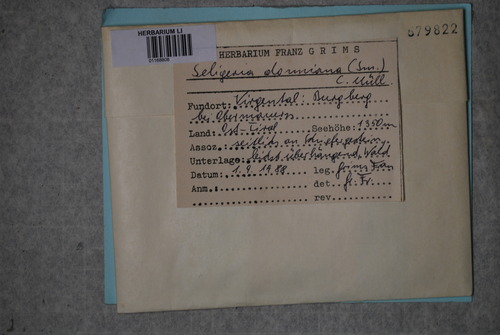 HERBARIUM LI
679822
HERBARIUM FRANZ GRIMS
Seligeria donniana (Sm.)
C. Müll
Fundort: Virgental: Burgberg
bei Obermauern
Land: Ost-Tirol Seehöhe: 1350m
Assoz. seitlich an
Unterlage: überhängend, Wald
Datum: 1.9.1988 leg. Grims Franz
Anm.: det. Gr. Fr.
rev.